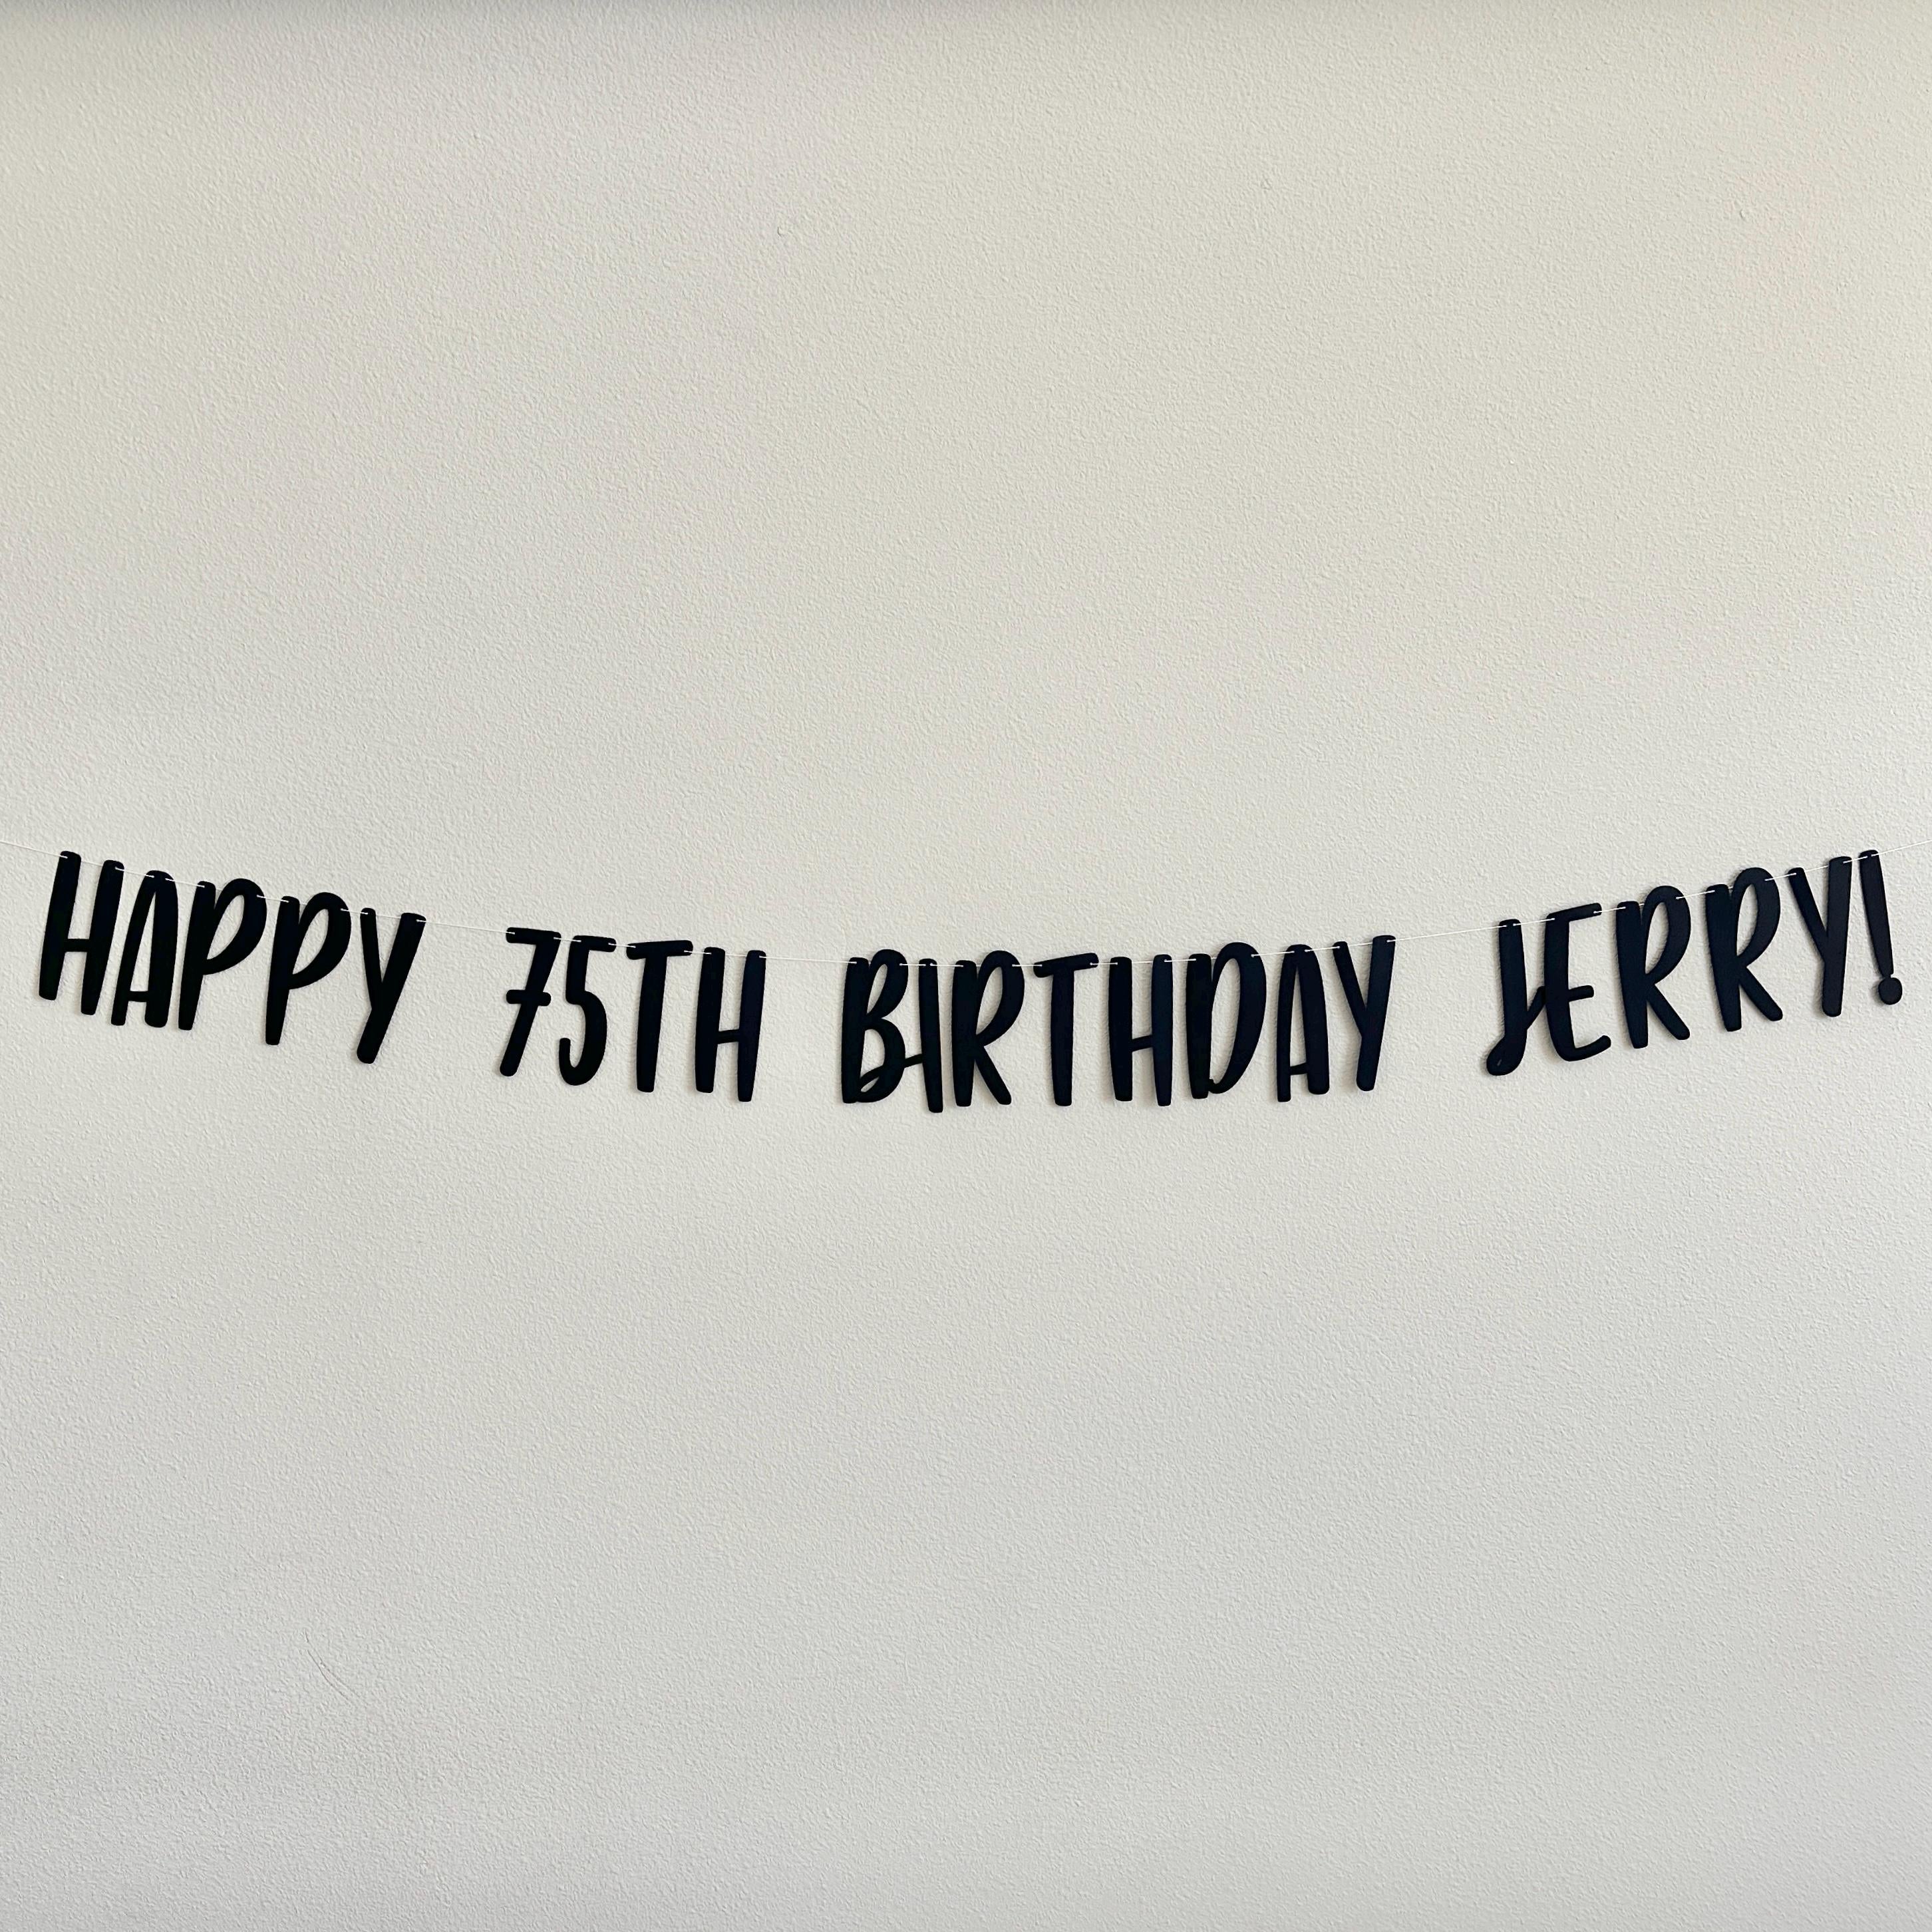 HAPPY 75TH BIRTHDAY JERRY!